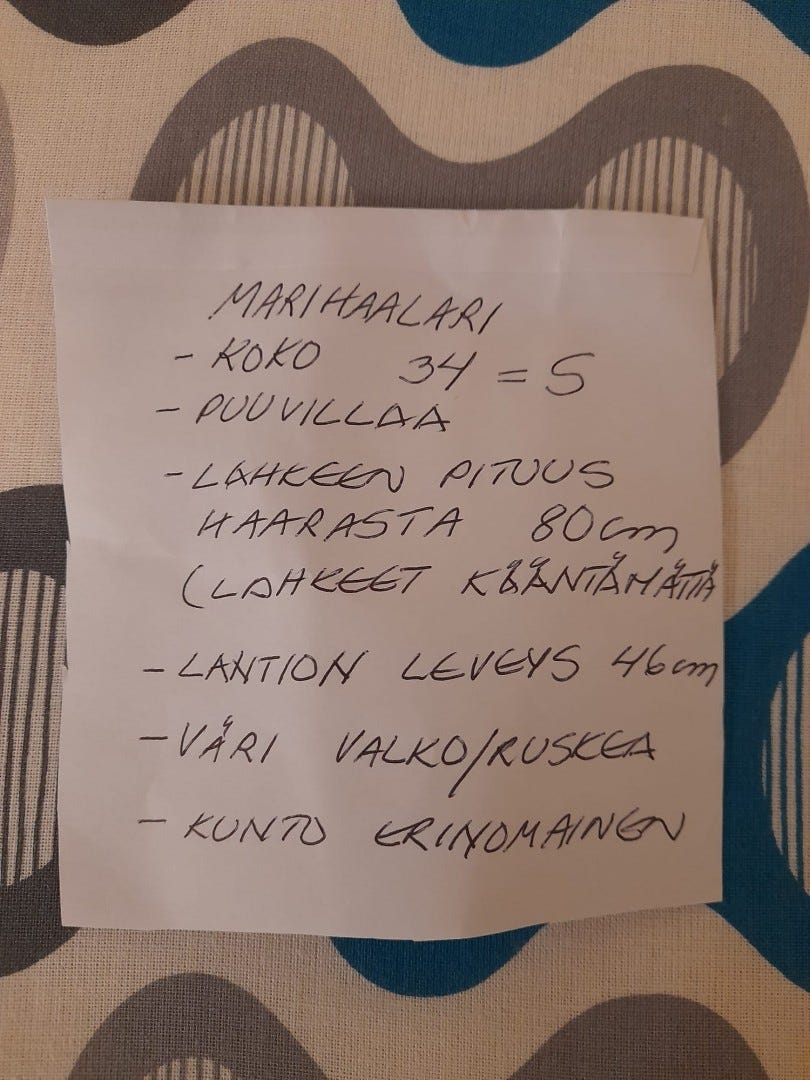 MARIHAALARI
- KOKO 34 = S
- PUUVILLAA
- LAHKEEN PITUUS
HAARASTA 80cm
(LAHKEET KÄÄNTÄMÄTTÄ
- LANTION LEVEYS 46cm
- VÄRI VALKO/RUSKEA
- KUNTO ERINOMAINEN